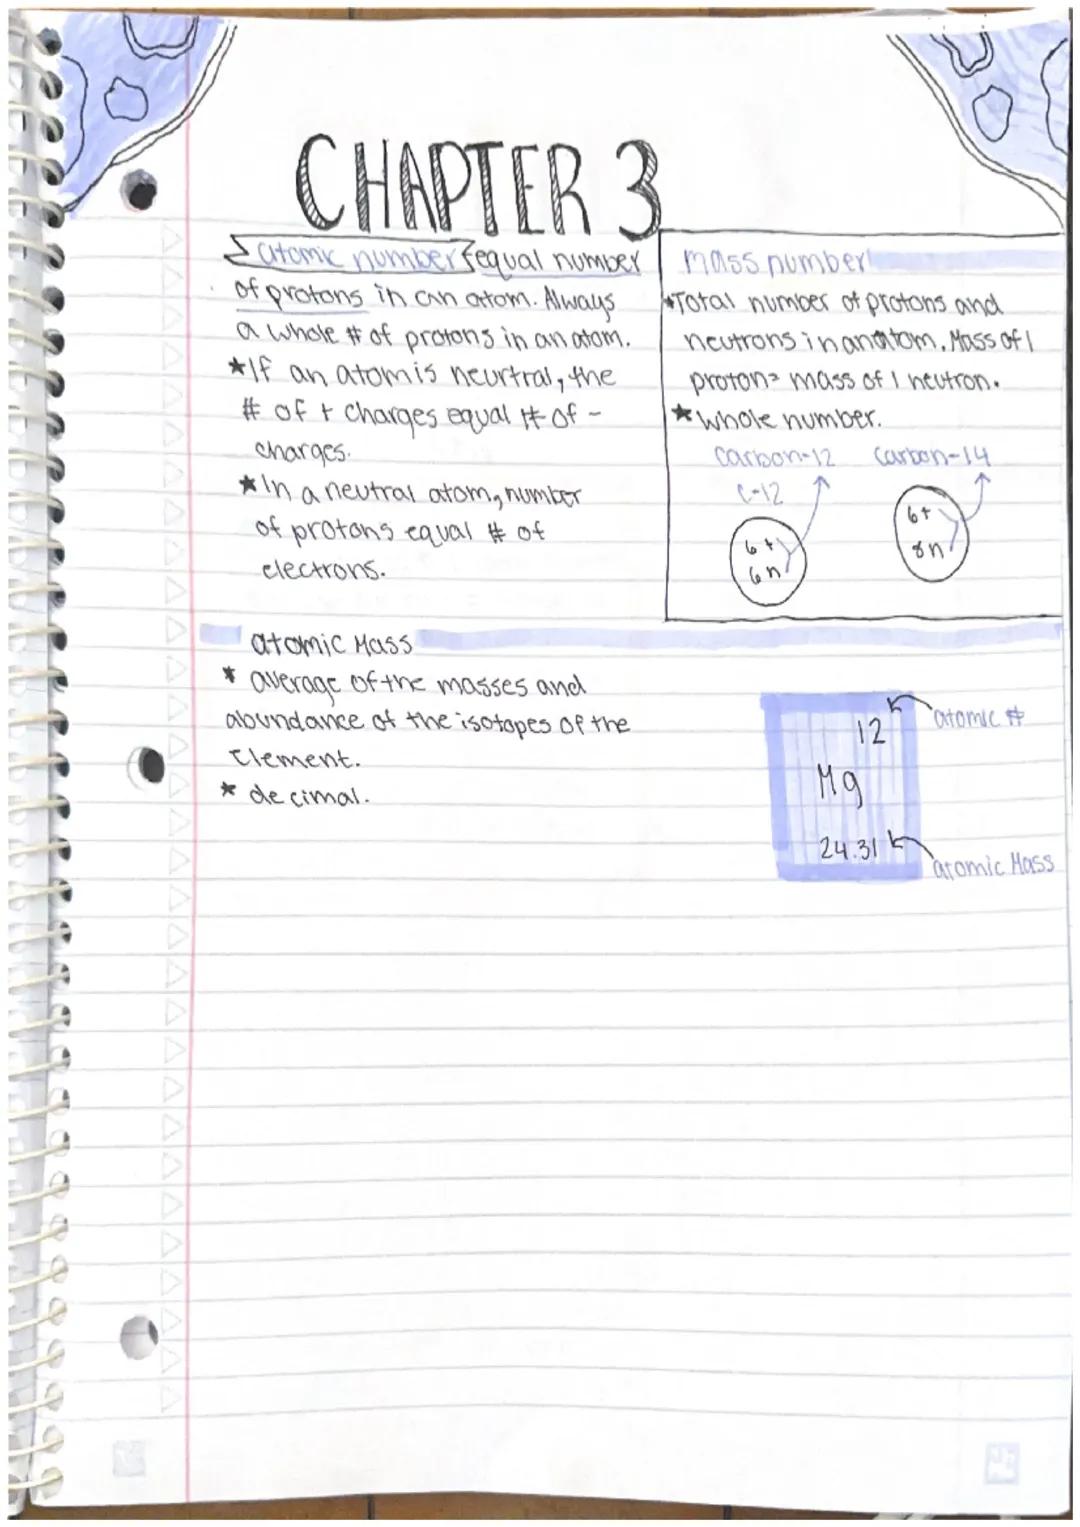 CHAPTER 3
atomic number equal number
of protons in an atom. Always
a whole # of protons in an atom.
*If an atom is neurtral, the
# of + charges equal # of -
charges.
*In a neutral atom, number
of protons equal # of
electrons.
mass number
*Total number of protons and
neutrons in an atom. Mass of 1
proton= mass of 1 neutron.
*whole number.
carbon-12 carbon-14
C-12
6+
6n
6+
8n
atomic Mass
* average of the masses and
abundance of the isotopes of the
Element.
* decimal.
12
atomic #
Mg
24.31
atomic Mass